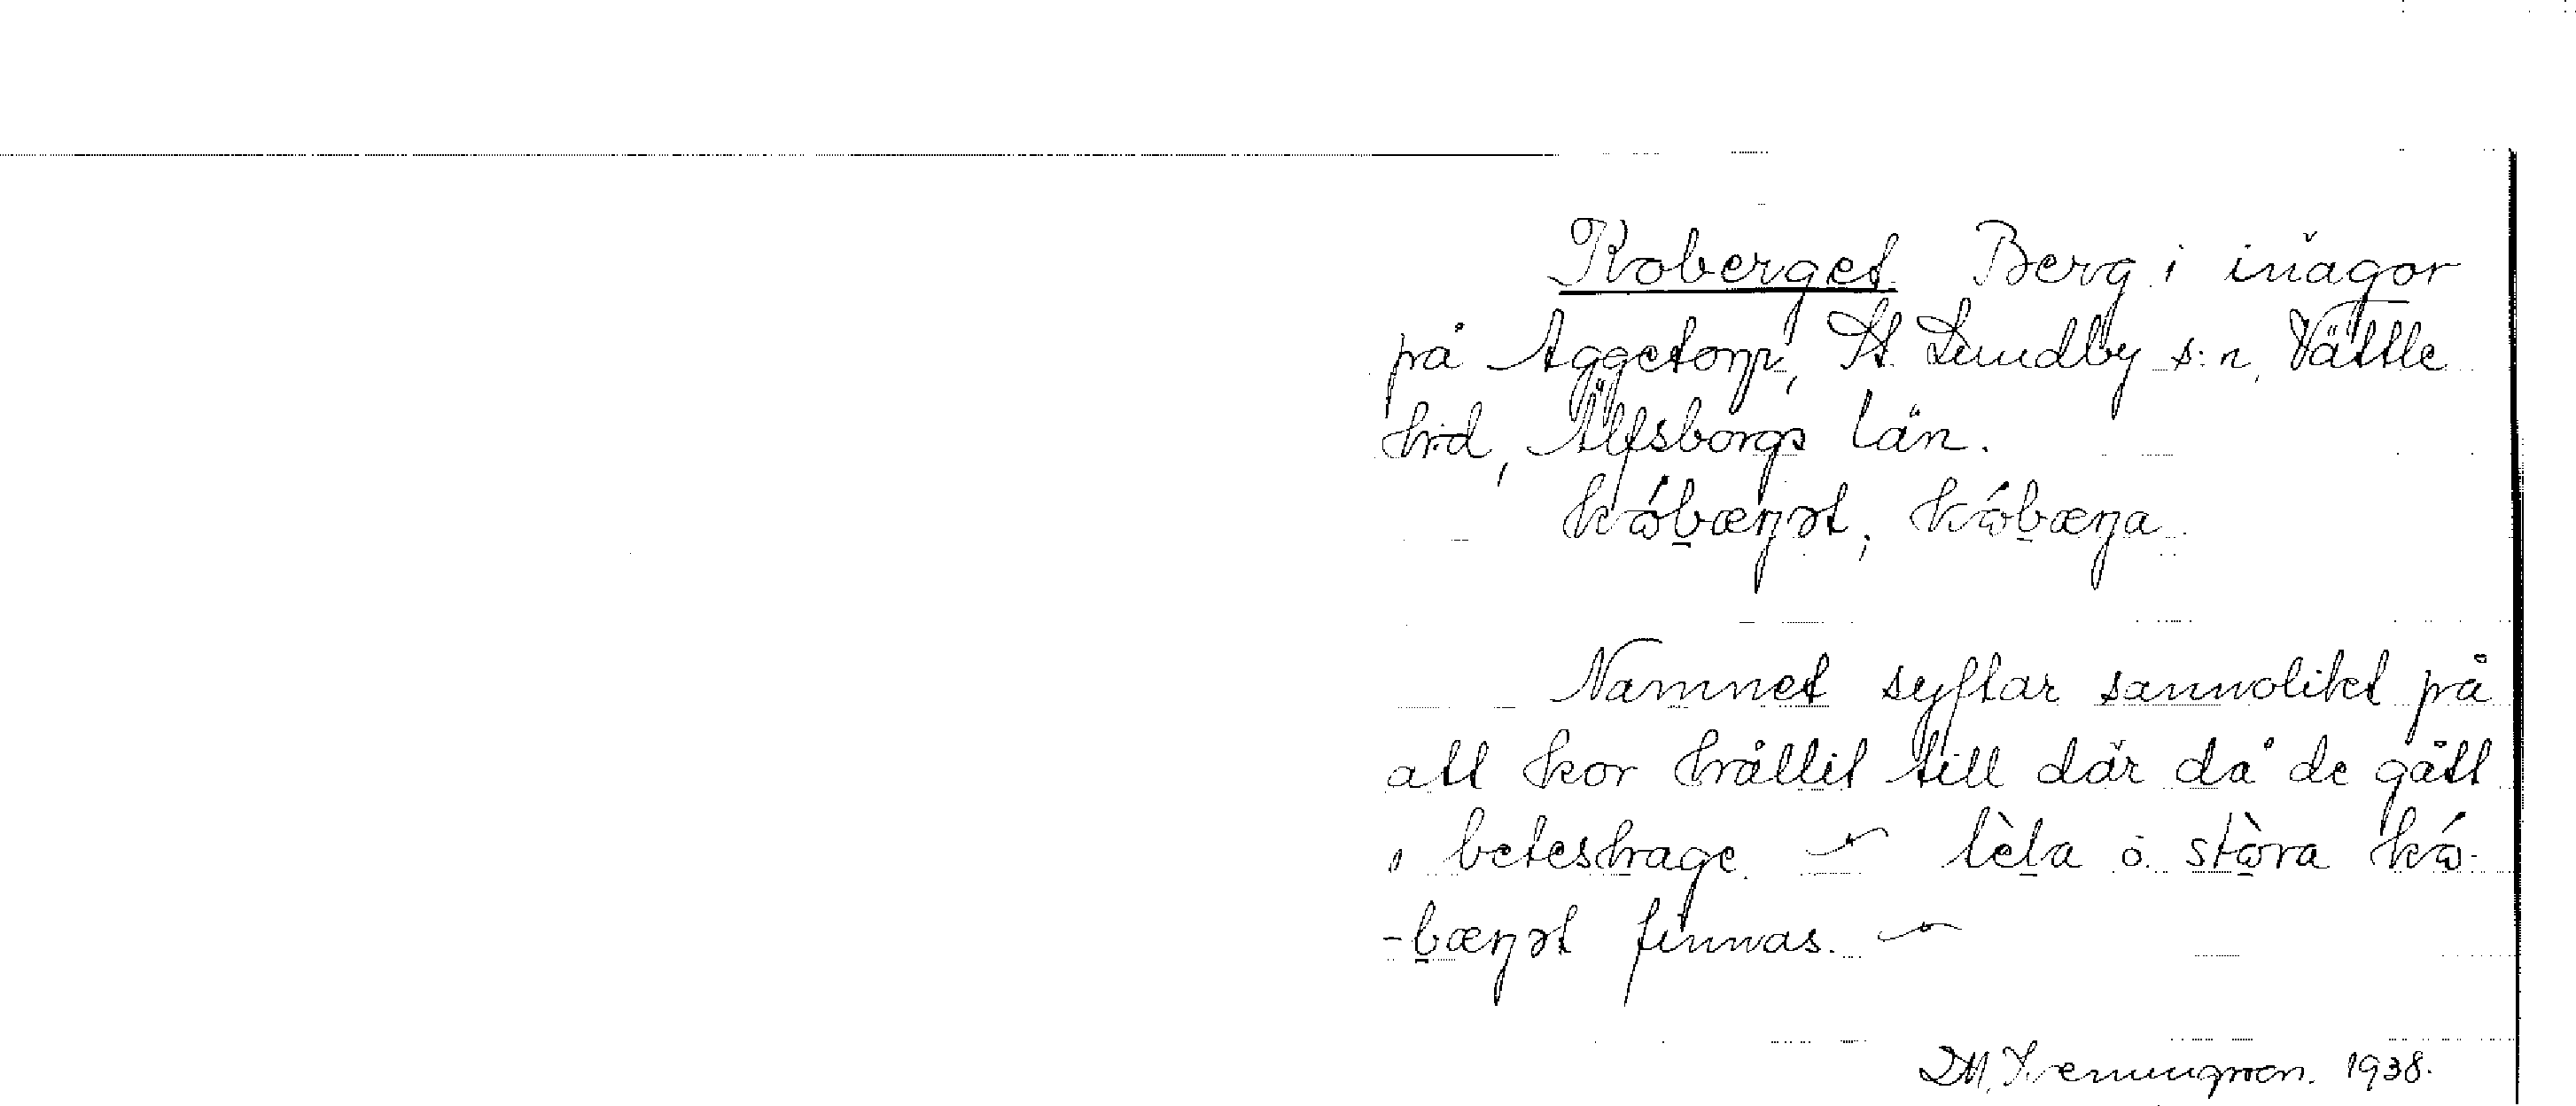 Koberget. Berg i inägor
på Aggetorp, St. Lundby s:n, Vättle
h:d, Älfsborgs län.
kó̱bæŋət, kó̱bæŋa.
Namnet syftar sannolikt på
att kor hållit till där då de gått
i beteshage. ~ lèla o. stòra kó-
-bæŋət finnas. ~
1938.